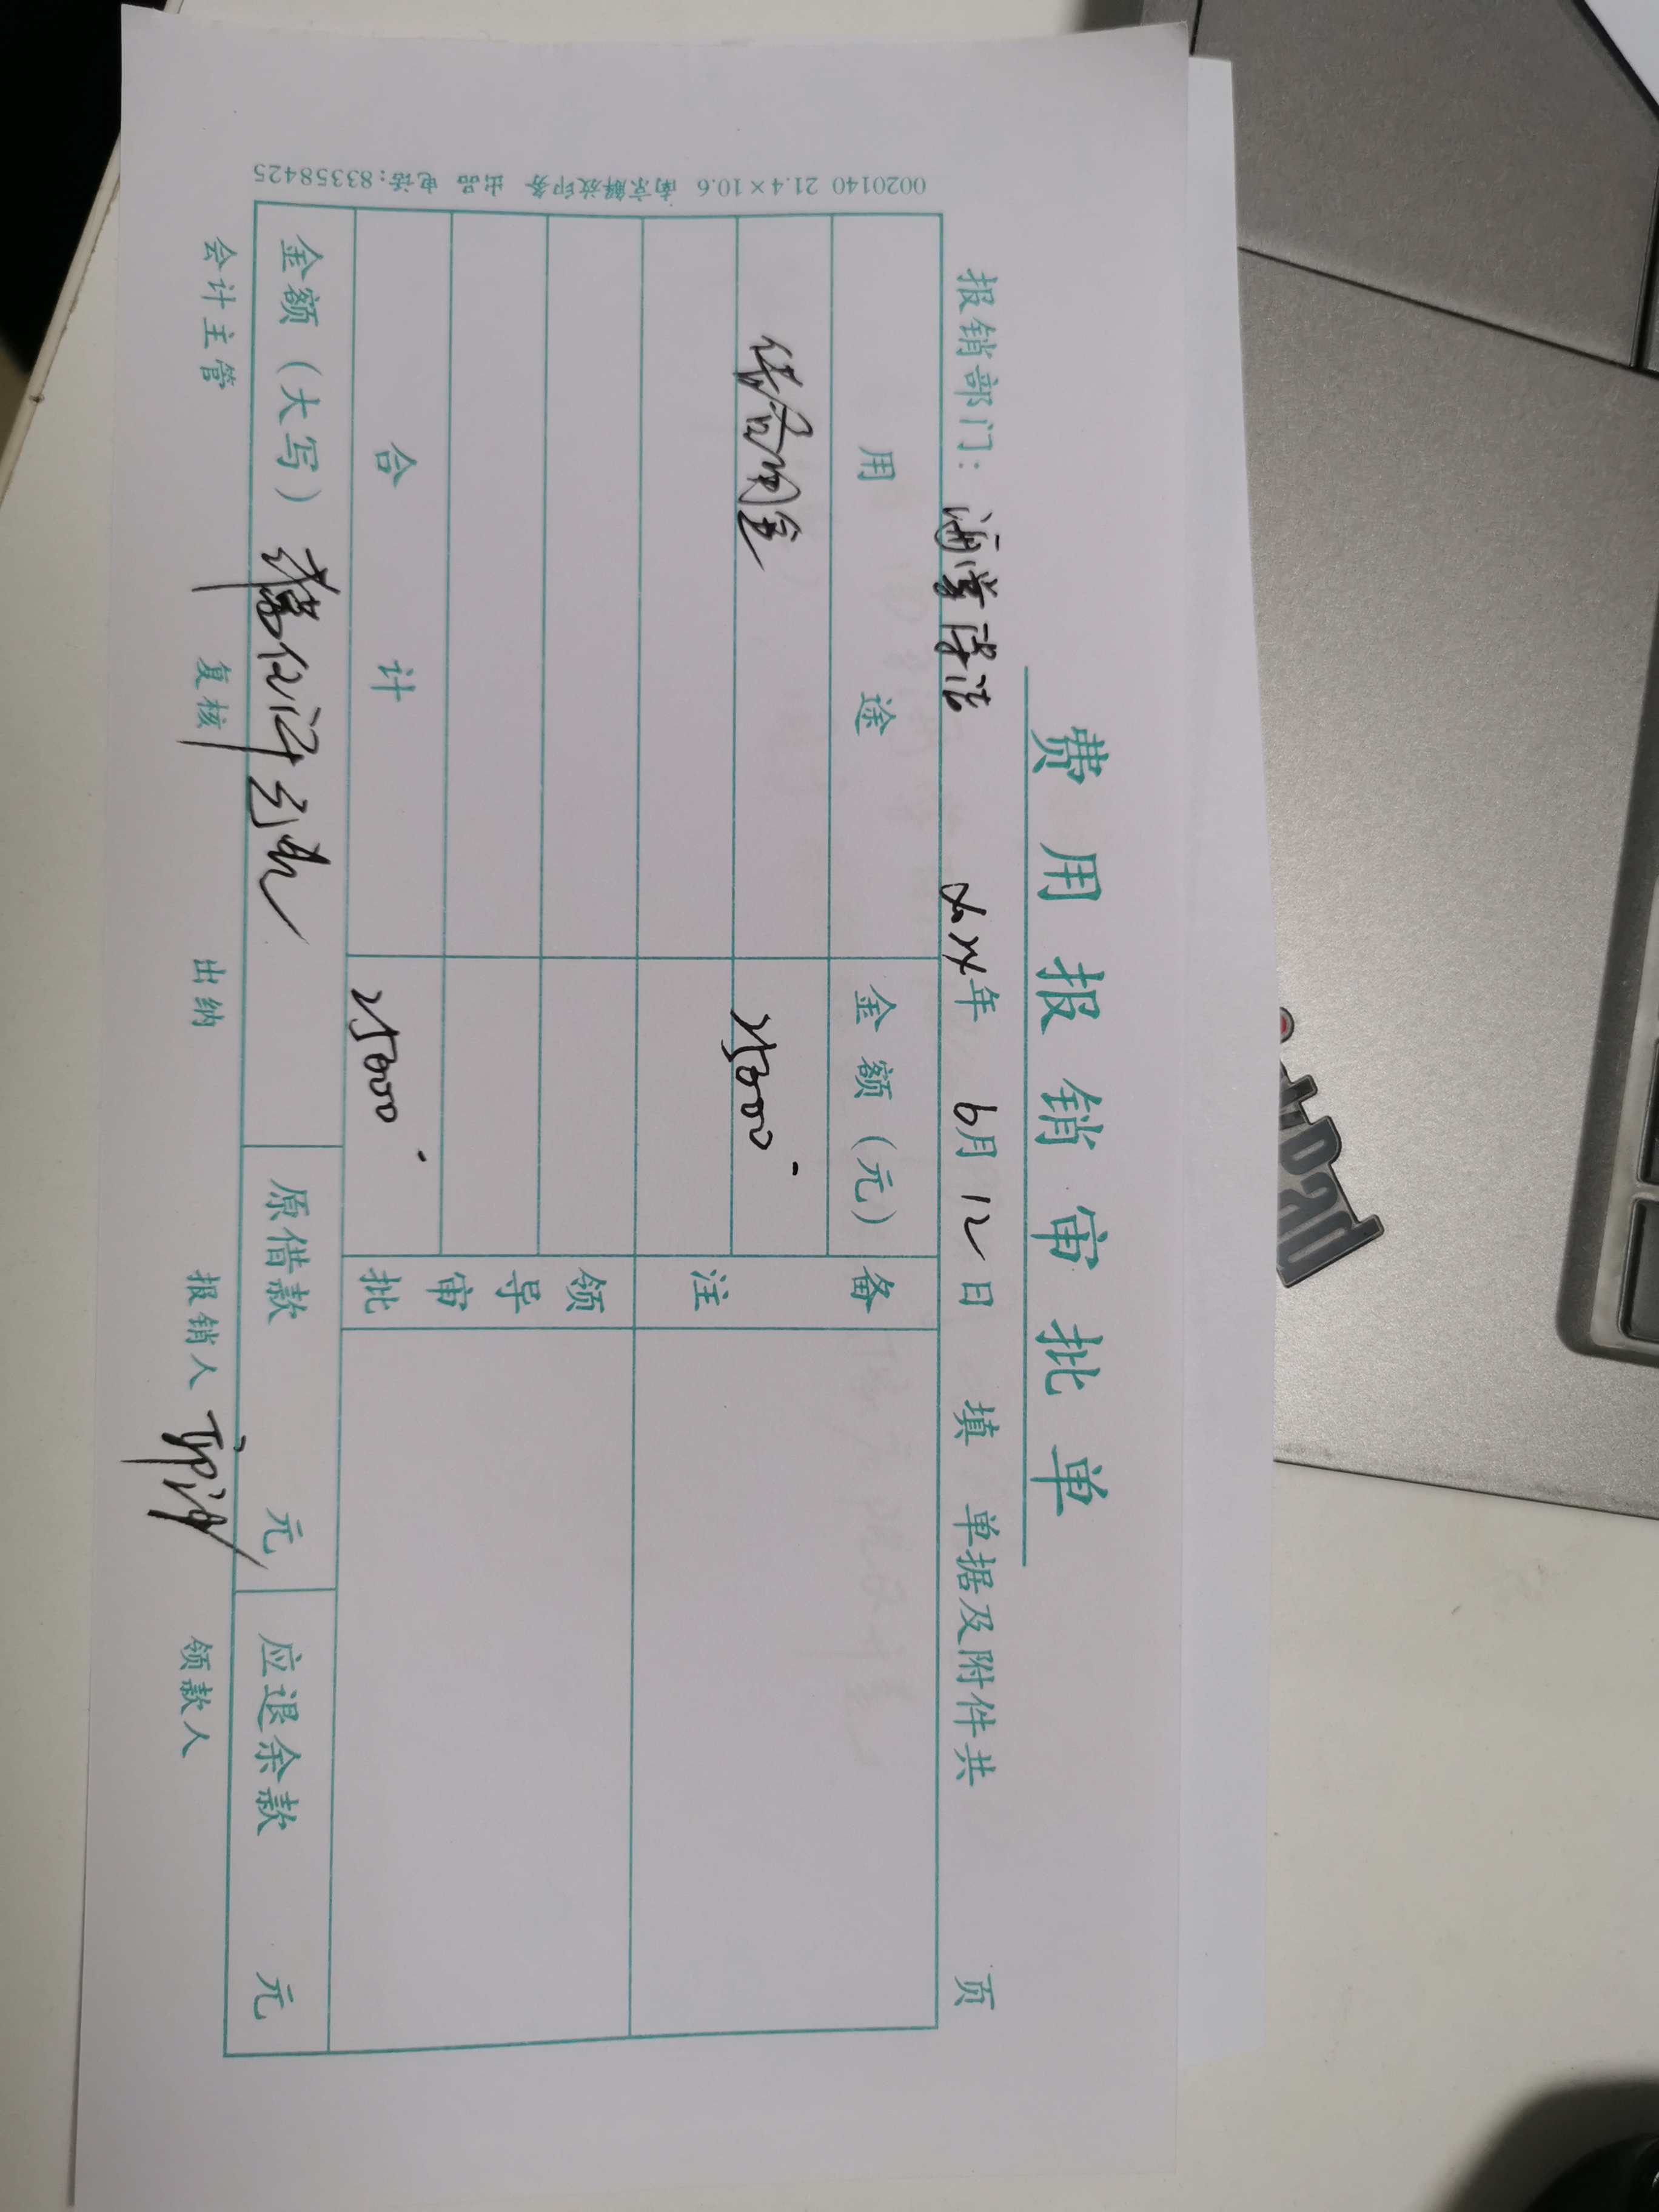 费用报销审批单
报销部门: 年 6月12日 填 单据及附件共 页
用途 金额(元) 备注
25000
领导审批
合计 25000
金额(大写) 原借款 元 应退余款 元
会计主管 复核 出纳 报销人 领款人
0020140 21.4×10.6 南京解放印务 出品 电话:83358425